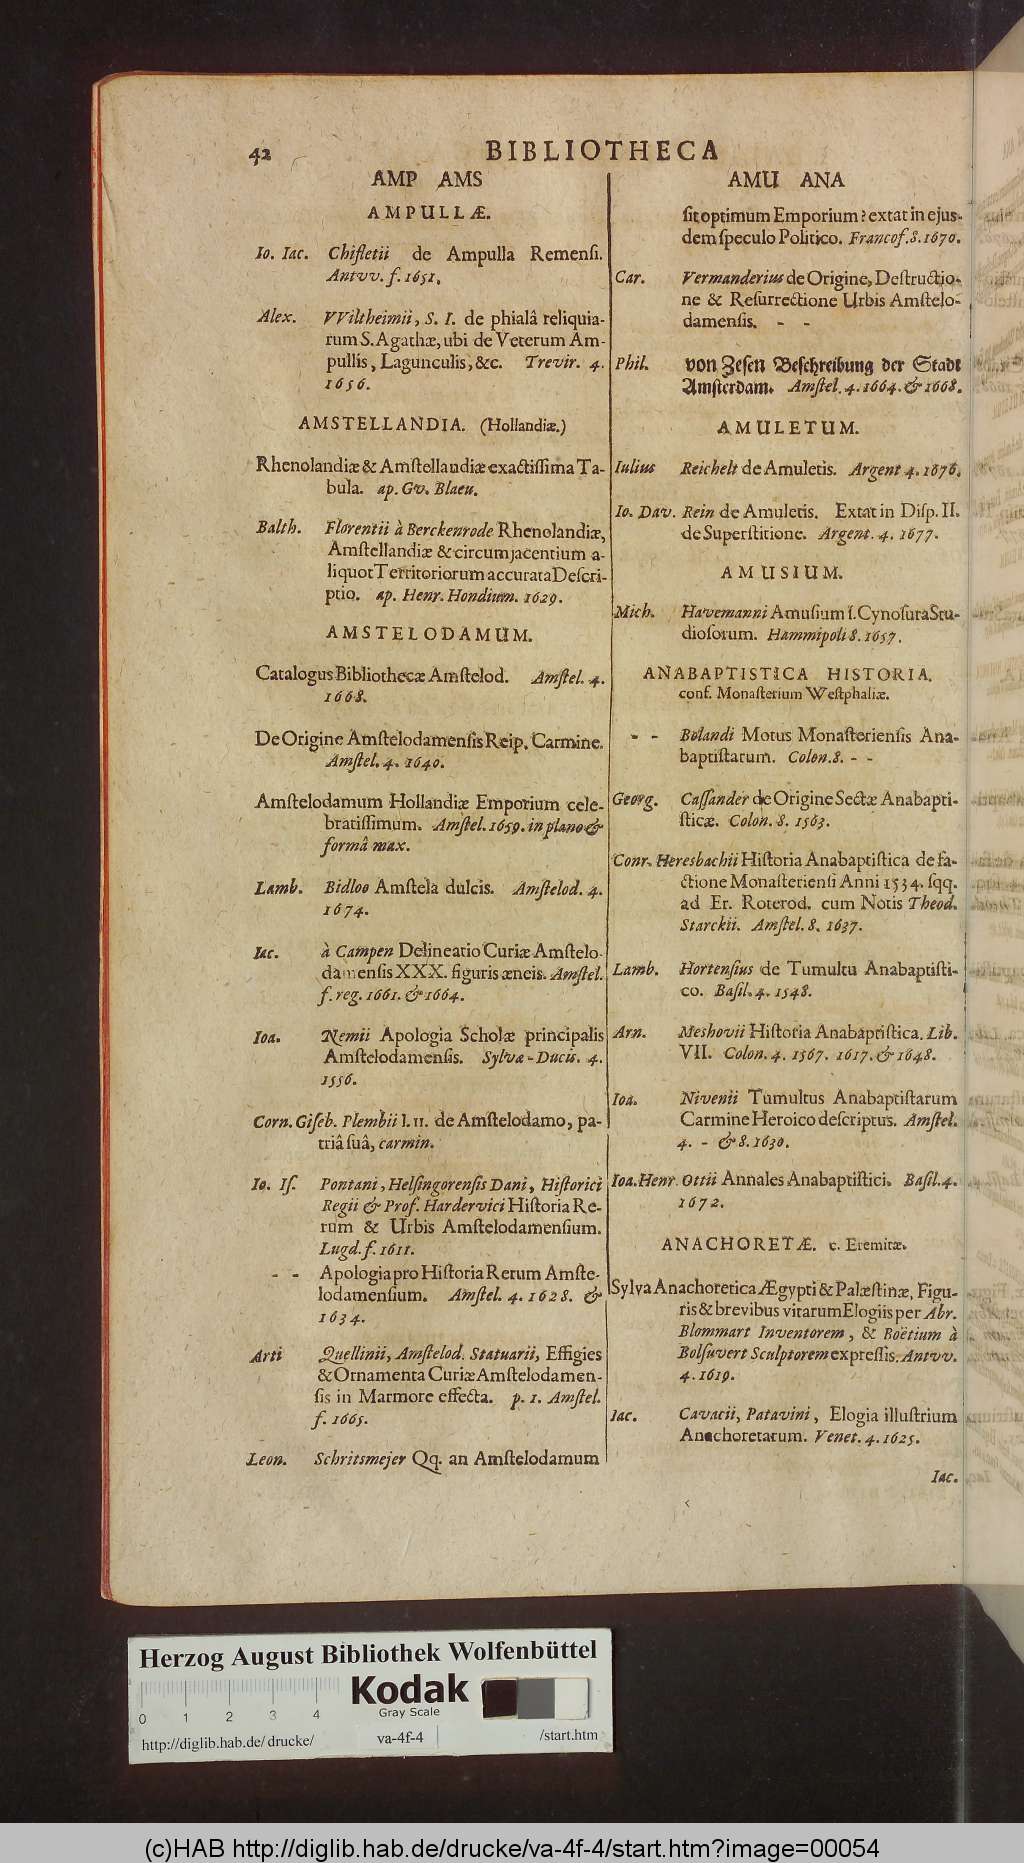 42
BIBLIOTHECA
AMP AMS
AMPULLÆ.
Io. Iac. Chifletii de Ampulla Remensi.
Antvv. f. 1651.
Alex. VViltheimii, S. I. de phialâ reliquia-
rum S. Agathæ, ubi de Veterum Am-
pullis, Lagunculis, &c. Trevir. 4.
1656.
AMSTELLANDIA. (Hollandiæ.)
Rhenolandiæ & Amstellandiæ exactissima Ta-
bula. ap. Gv. Blaeu.
Balth. Florentii à Berckenrode Rhenolandiæ,
Amstellandiæ & circumjacentium a-
liquot Territoriorum accurata Descri-
ptio. ap. Henr. Hondium. 1629.
AMSTELODAMUM.
Catalogus Bibliothecæ Amstelod. Amstel. 4.
1668.
De Origine Amstelodamensis Reip. Carmine.
Amstel. 4. 1640.
Amstelodamum Hollandiæ Emporium cele-
bratissimum. Amstel. 1659. in plano &
formâ max.
Lamb. Bidloo Amstela dulcis. Amstelod. 4.
1674.
Iac. à Campen Delineatio Curiæ Amstelo-
damensis XXX. figuris æneis. Amstel.
f. reg. 1661. & 1664.
Ioa. Nemii Apologia Scholæ principalis
Amstelodamensis. Sylvæ-Ducis. 4.
1556.
Corn. Giseb. Plembii l. 11. de Amstelodamo, pa-
triâ suâ, carmin.
Io. Is. Pontani, Helsingorensis Dani, Historici
Regii & Prof. Hardervici Historia Re-
rum & Urbis Amstelodamensium.
Lugd. f. 1611.
- - Apologia pro Historia Rerum Amste-
lodamensium. Amstel. 4. 1628. &
1634.
Arti Quellinii, Amstelod. Statuarii, Effigies
& Ornamenta Curiæ Amstelodamen-
sis in Marmore effecta. p. 1. Amstel.
f. 1665.
Leon. Schritsmejer Qq. an Amstelodamum
AMU ANA
sit optimum Emporium? extat in ejus-
dem speculo Politico. Francof. 8. 1670.
Car. Vermanderius de Origine, Destructio-
ne & Resurrectione Urbis Amstelo-
damensis. - -
Phil. von Zesen Beschreibung der Stadt
Amsterdam. Amstel. 4. 1664. & 1668.
AMULETUM.
Iulius Reichelt de Amuletis. Argent 4. 1676.
Io. Dav. Rein de Amuletis. Extat in Disp. II.
de Superstitione. Argent. 4. 1677.
AMUSIUM.
Mich. Havemanni Amusium s. Cynosura Stu-
diosorum. Hammipoli 8. 1657.
ANABAPTISTICA HISTORIA.
conf. Monasterium Westphaliæ.
- - Bolandi Motus Monasteriensis Ana-
baptistarum. Colon. 8. - -
Georg. Cassander de Origine Sectæ Anabapti-
sticæ. Colon. 8. 1563.
Conr. Heresbachii Historia Anabaptistica de fa-
ctione Monasteriensi Anni 1534. sqq.
ad Er. Roterod. cum Notis Theod.
Starckii. Amstel. 8. 1637.
Lamb. Hortensius de Tumultu Anabaptisti-
co. Basil. 4. 1548.
Arn. Meshovii Historia Anabaptistica. Lib.
VII. Colon. 4. 1567. 1617. & 1648.
Ioa. Nivenii Tumultus Anabaptistarum
Carmine Heroico descriptus. Amstel.
4. - & 8. 1630.
Ioa. Henr. Ottii Annales Anabaptistici. Basil. 4.
1672.
ANACHORETÆ. c. Eremitæ.
Sylva Anachoretica Ægypti & Palæstinæ, Figu-
ris & brevibus vitarum Elogiis per Abr.
Blommart Inventorem, & Boëtium à
Bolsuvert Sculptorem expressis. Antvv.
4. 1619.
Iac. Cavacii, Patavini, Elogia illustrium
Anachoretarum. Venet. 4. 1625.
Iac.
Herzog August Bibliothek Wolfenbüttel
0 1 2 3 4
Kodak
Gray Scale
http://diglib.hab.de/drucke/ va-4f-4 /start.htm
(c)HAB http://diglib.hab.de/drucke/va-4f-4/start.htm?image=00054